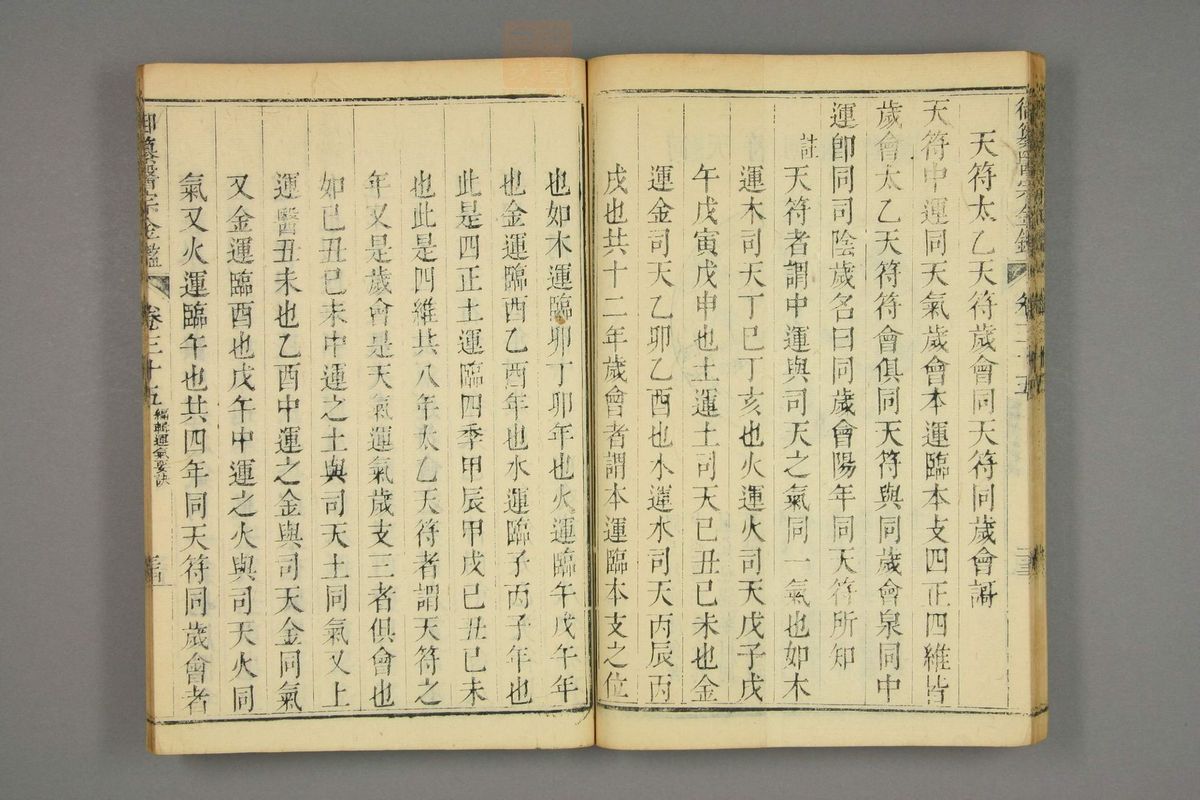 天符太乙天符歲會同天符同歲會訣
天符中運同天氣歲會本運臨本支四正四維皆
歲會太乙天符符會俱同天符與同歲會泉同中
運卽同司陰歲名曰同歲會陽年同天符所知
註天符者謂中運與司天之氣同一氣也如木
運木司天丁巳丁亥也火運火司天戊子戊
午戊寅戊申也土運土司天己丑己未也金
運金司天乙卯乙酉也水運水司天丙辰丙
戌也共十二年歲會者謂本運臨本支之位
也如木運臨卯丁卯年也火運臨午戊午年
也金運臨酉乙酉年也水運臨子丙子年也
此是四正土運臨四季甲辰甲戌己丑己未
也此是四維共八年太乙天符者謂天符之
年又是歲會是天氣運氣歲支三者俱會也
如己丑己未中運之土與司天土同氣又上
運臨丑未也乙酉中運之金與司天金同氣
又金運臨酉也戊午中運之火與司天火同
氣又火運臨午也共四年同天符同歲會者
御纂醫宗金鑑 卷三十五 編輯運氣要訣